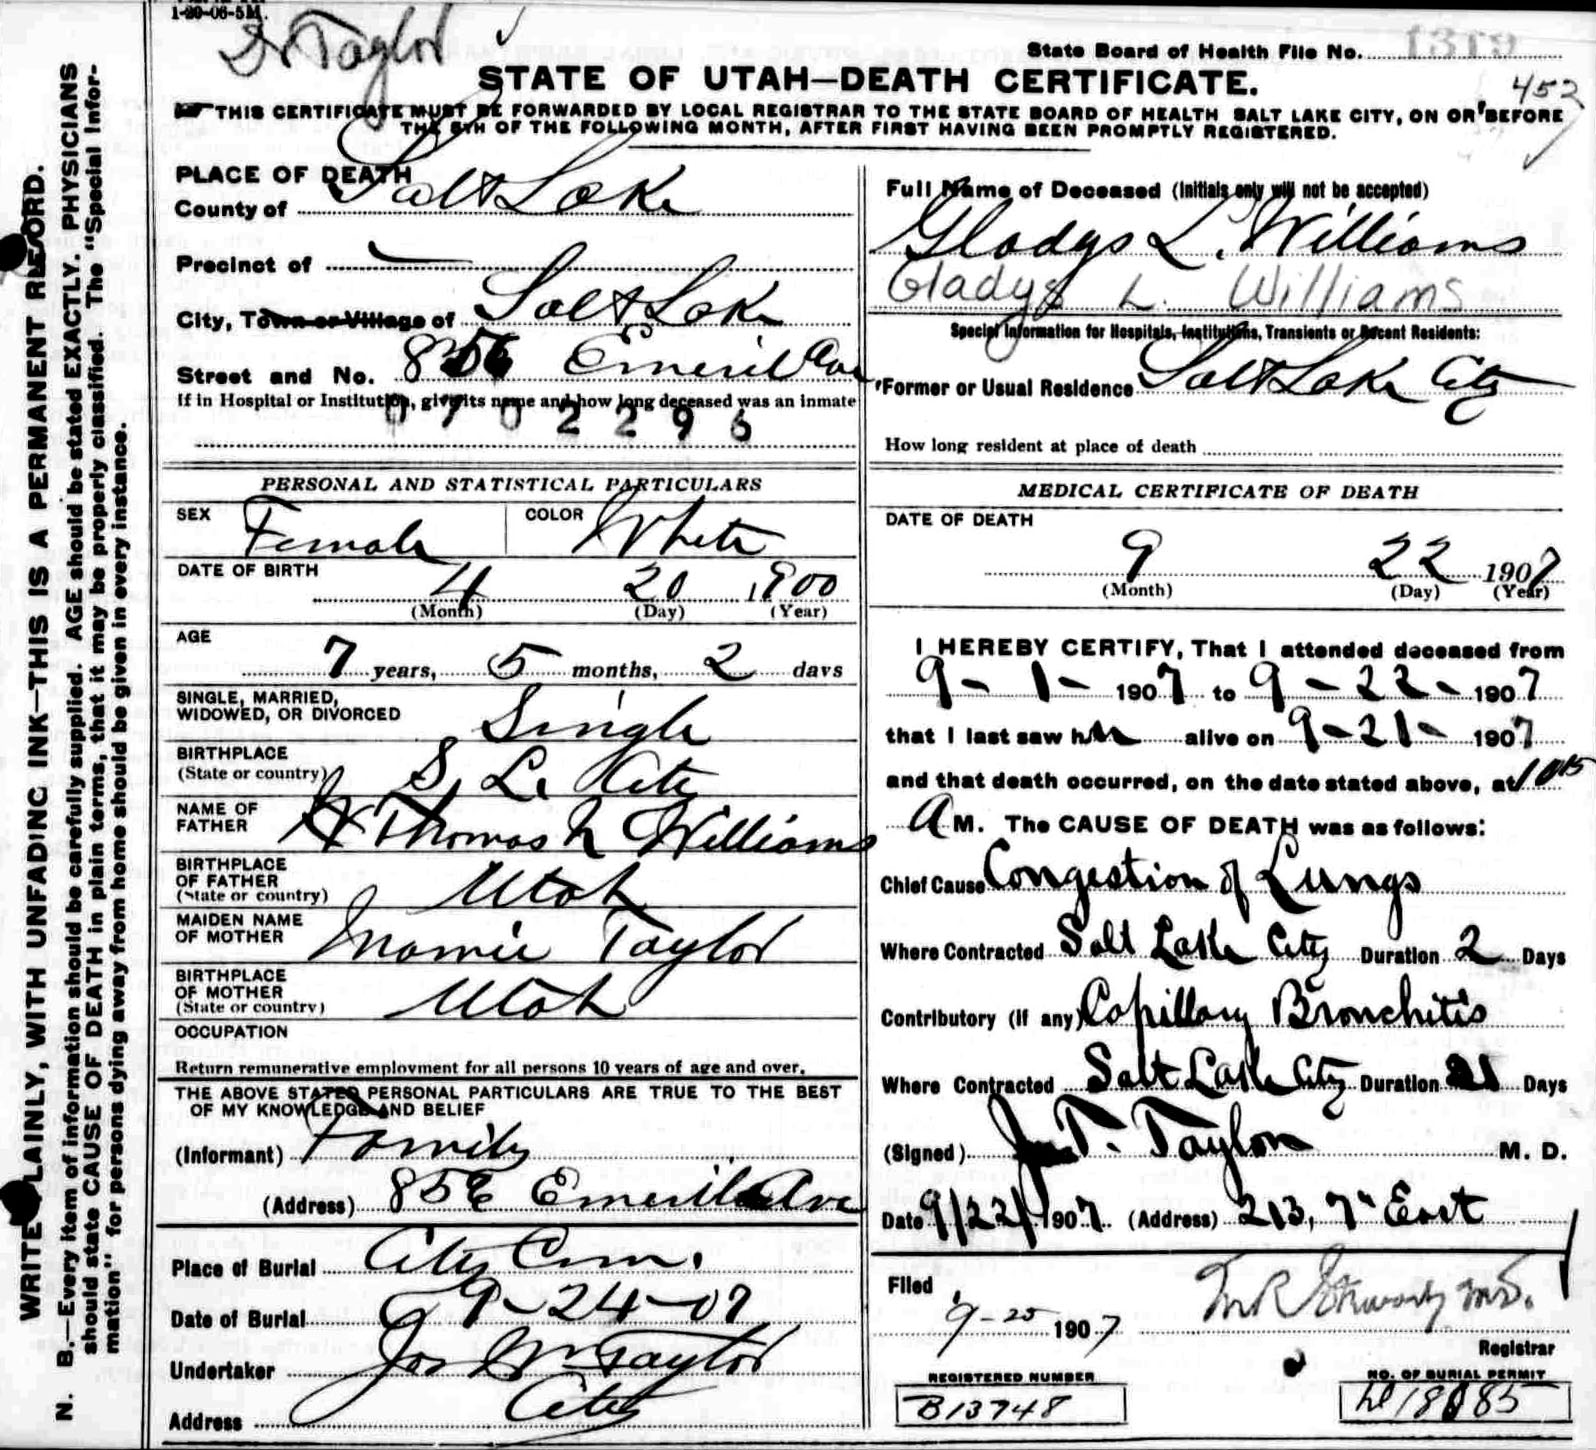 1-20-06-5M.
Dr Taylor
State Board of Health File No.
STATE OF UTAH—DEATH CERTIFICATE.
452
THIS CERTIFICATE MUST BE FORWARDED BY LOCAL REGISTRAR TO THE STATE BOARD OF HEALTH SALT LAKE CITY, ON OR BEFORE
THE 5TH OF THE FOLLOWING MONTH, AFTER FIRST HAVING BEEN PROMPTLY REGISTERED.
WRITE PLAINLY, WITH UNFADING INK—THIS IS A PERMANENT RECORD.
N. B.—Every item of information should be carefully supplied. AGE should be stated EXACTLY. PHYSICIANS
should state CAUSE OF DEATH in plain terms, that it may be properly classified. The "Special Infor-
mation" for persons dying away from home should be given in every instance.
PLACE OF DEATH
County of Salt Lake
Precinct of
City, Town or Village of Salt Lake
Street and No. 856 Emeril Ave
If in Hospital or Institution, give its name and how long deceased was an inmate
0702296
PERSONAL AND STATISTICAL PARTICULARS
SEX Female COLOR White
DATE OF BIRTH 4 20 1900
(Month) (Day) (Year)
AGE
7 years, 5 months, 2 days
SINGLE, MARRIED,
WIDOWED, OR DIVORCED Single
BIRTHPLACE
(State or country) S. L. City
NAME OF
FATHER Thomas N Williams
BIRTHPLACE
OF FATHER
(State or country) Utah
MAIDEN NAME
OF MOTHER Mamie Taylor
BIRTHPLACE
OF MOTHER
(State or country) Utah
OCCUPATION
Return remunerative employment for all persons 10 years of age and over.
THE ABOVE STATED PERSONAL PARTICULARS ARE TRUE TO THE BEST
OF MY KNOWLEDGE AND BELIEF
(Informant) Family
(Address) 856 Emeril Ave
Place of Burial City Cem.
Date of Burial 9-24-07
Undertaker Jos Wm Taylor
Address City
Full Name of Deceased (Initials only will not be accepted)
Gladys L. Williams
Gladys L. Williams
Special Information for Hospitals, Institutions, Transients or Recent Residents:
Former or Usual Residence Salt Lake City
How long resident at place of death
MEDICAL CERTIFICATE OF DEATH
DATE OF DEATH
9 22 1907
(Month) (Day) (Year)
I HEREBY CERTIFY, That I attended deceased from
9-1-1907 to 9-22-1907
that I last saw her alive on 9-21-1907
and that death occurred, on the date stated above, at 1015
A M. The CAUSE OF DEATH was as follows:
Chief Cause Congestion of Lungs
Where Contracted Salt Lake City Duration 2 Days
Contributory (if any) Capillary Bronchitis
Where Contracted Salt Lake City Duration 21 Days
(Signed) T. Taylor M. D.
Date 9/22/1907 (Address) 213, 7" East
Filed
9-25 1907
Registrar
REGISTERED NUMBER
B13748
NO. OF BURIAL PERMIT